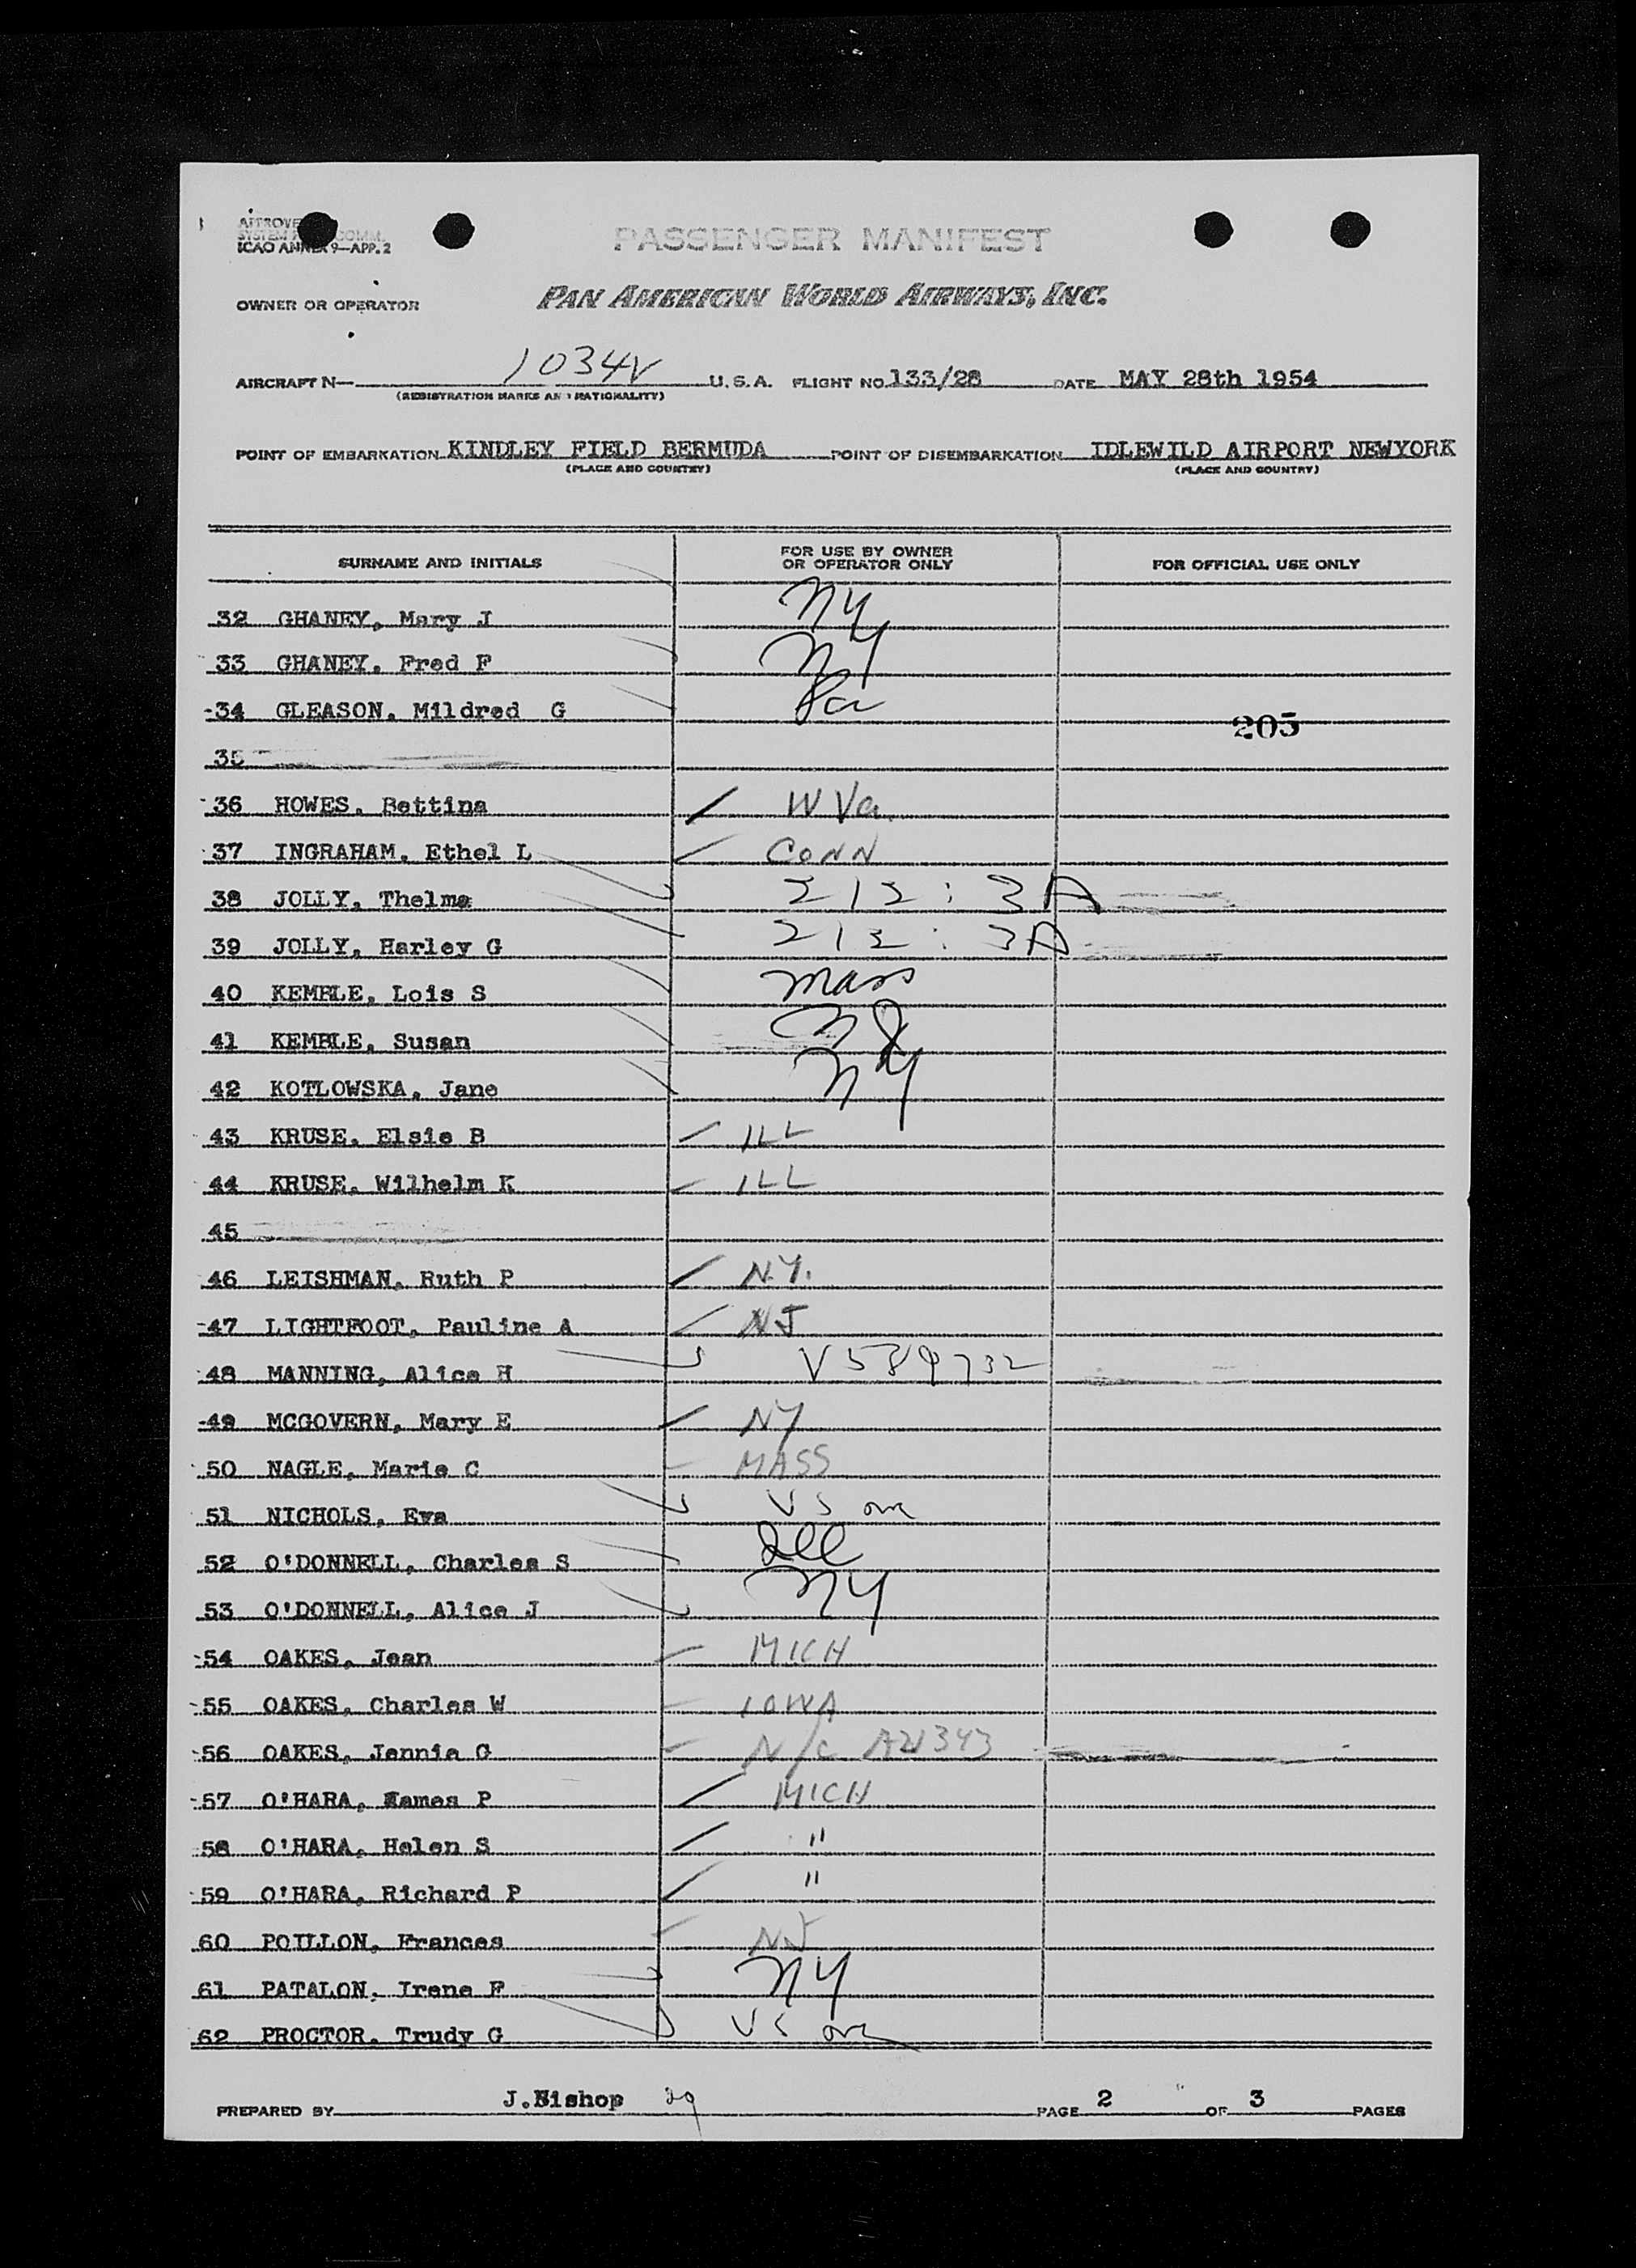 ICAO ANNEX 9—APP. 2
PASSENGER MANIFEST
OWNER OR OPERATOR PAN AMERICAN WORLD AIRWAYS, INC.
AIRCRAFT N— 1034V U.S.A. FLIGHT NO. 133/28 DATE MAY 28th 1954
(REGISTRATION MARKS AND NATIONALITY)
POINT OF EMBARKATION KINDLEY FIELD BERMUDA POINT OF DISEMBARKATION IDLEWILD AIRPORT NEWYORK
(PLACE AND COUNTRY) (PLACE AND COUNTRY)
SURNAME AND INITIALS FOR USE BY OWNER OR OPERATOR ONLY FOR OFFICIAL USE ONLY
32 GHANEY, Mary J NY
33 GHANEY, Fred F NY
34 GLEASON, Mildred G Pa
205
35
36 HOWES, Bettina W Va.
37 INGRAHAM, Ethel L CONN
38 JOLLY, Thelma 212 : 3A
39 JOLLY, Harley G 212 : 3A
40 KEMBLE, Lois S Mass
41 KEMBLE, Susan NJ
42 KOTLOWSKA, Jane NY
43 KRUSE, Elsie B ILL
44 KRUSE, Wilhelm K ILL
45
46 LEISHMAN, Ruth P N.Y.
47 LIGHTFOOT, Pauline A NJ
48 MANNING, Alice H V589732
49 MCGOVERN, Mary E NY
50 NAGLE, Marie C MASS
51 NICHOLS, Eva VS
52 O'DONNELL, Charles S Ill
53 O'DONNELL, Alice J NY
54 OAKES, Jean MICH
55 OAKES, Charles W IOWA
56 OAKES, Jennie G N/C
57 O'HARA, James P MICH
58 O'HARA, Helen S "
59 O'HARA, Richard P "
60 POILLON, Frances NJ
61 PATALON, Irene F NY
62 PROCTOR, Trudy G VS
PREPARED BY J.Bishop PAGE 2 OF 3 PAGES